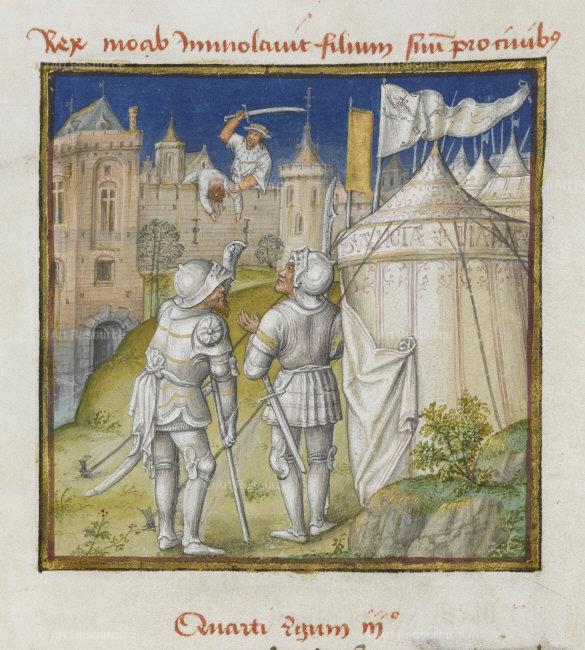 Rex moab Immolavit filium suū pro civib9
Quarti Regum iijo
Art Resource